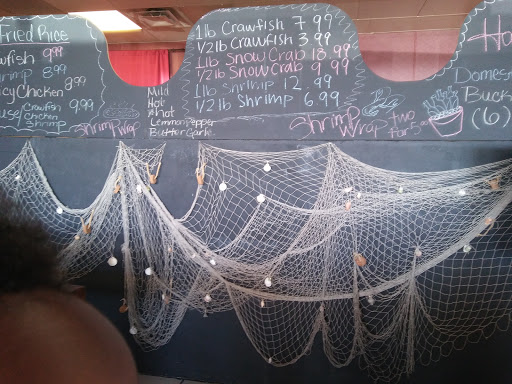 Fried Rice
wfish 9.99
rimp 8.99
cy Chicken 8.99
use/Crawfish Chicken Shrimp 9.99
Shrimp Wrap
Mild
Hot
xhot
Lemon Pepper
Butter Garlic
1 lb Crawfish 7.99
1/2 lb Crawfish 3.99
1 lb Snow Crab 18.99
1/2 lb Snow Crab 9.99
1 lb Shrimp 12.99
1/2 lb Shrimp 6.99
Shrimp Wrap two for 5.00
Ho
Domes
Buck
(6)